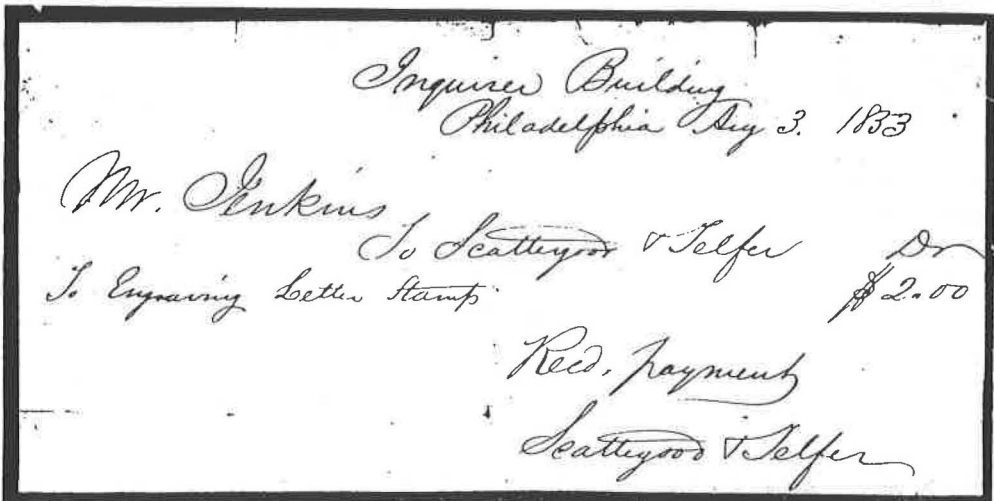 Inquirer Building
Philadelphia Aug 3. 1853
Mr. Jenkins
To Scattergood & Telfer Dr
To Engraving Letter Stamp $2.00
Recd. payment
Scattergood & Telfer